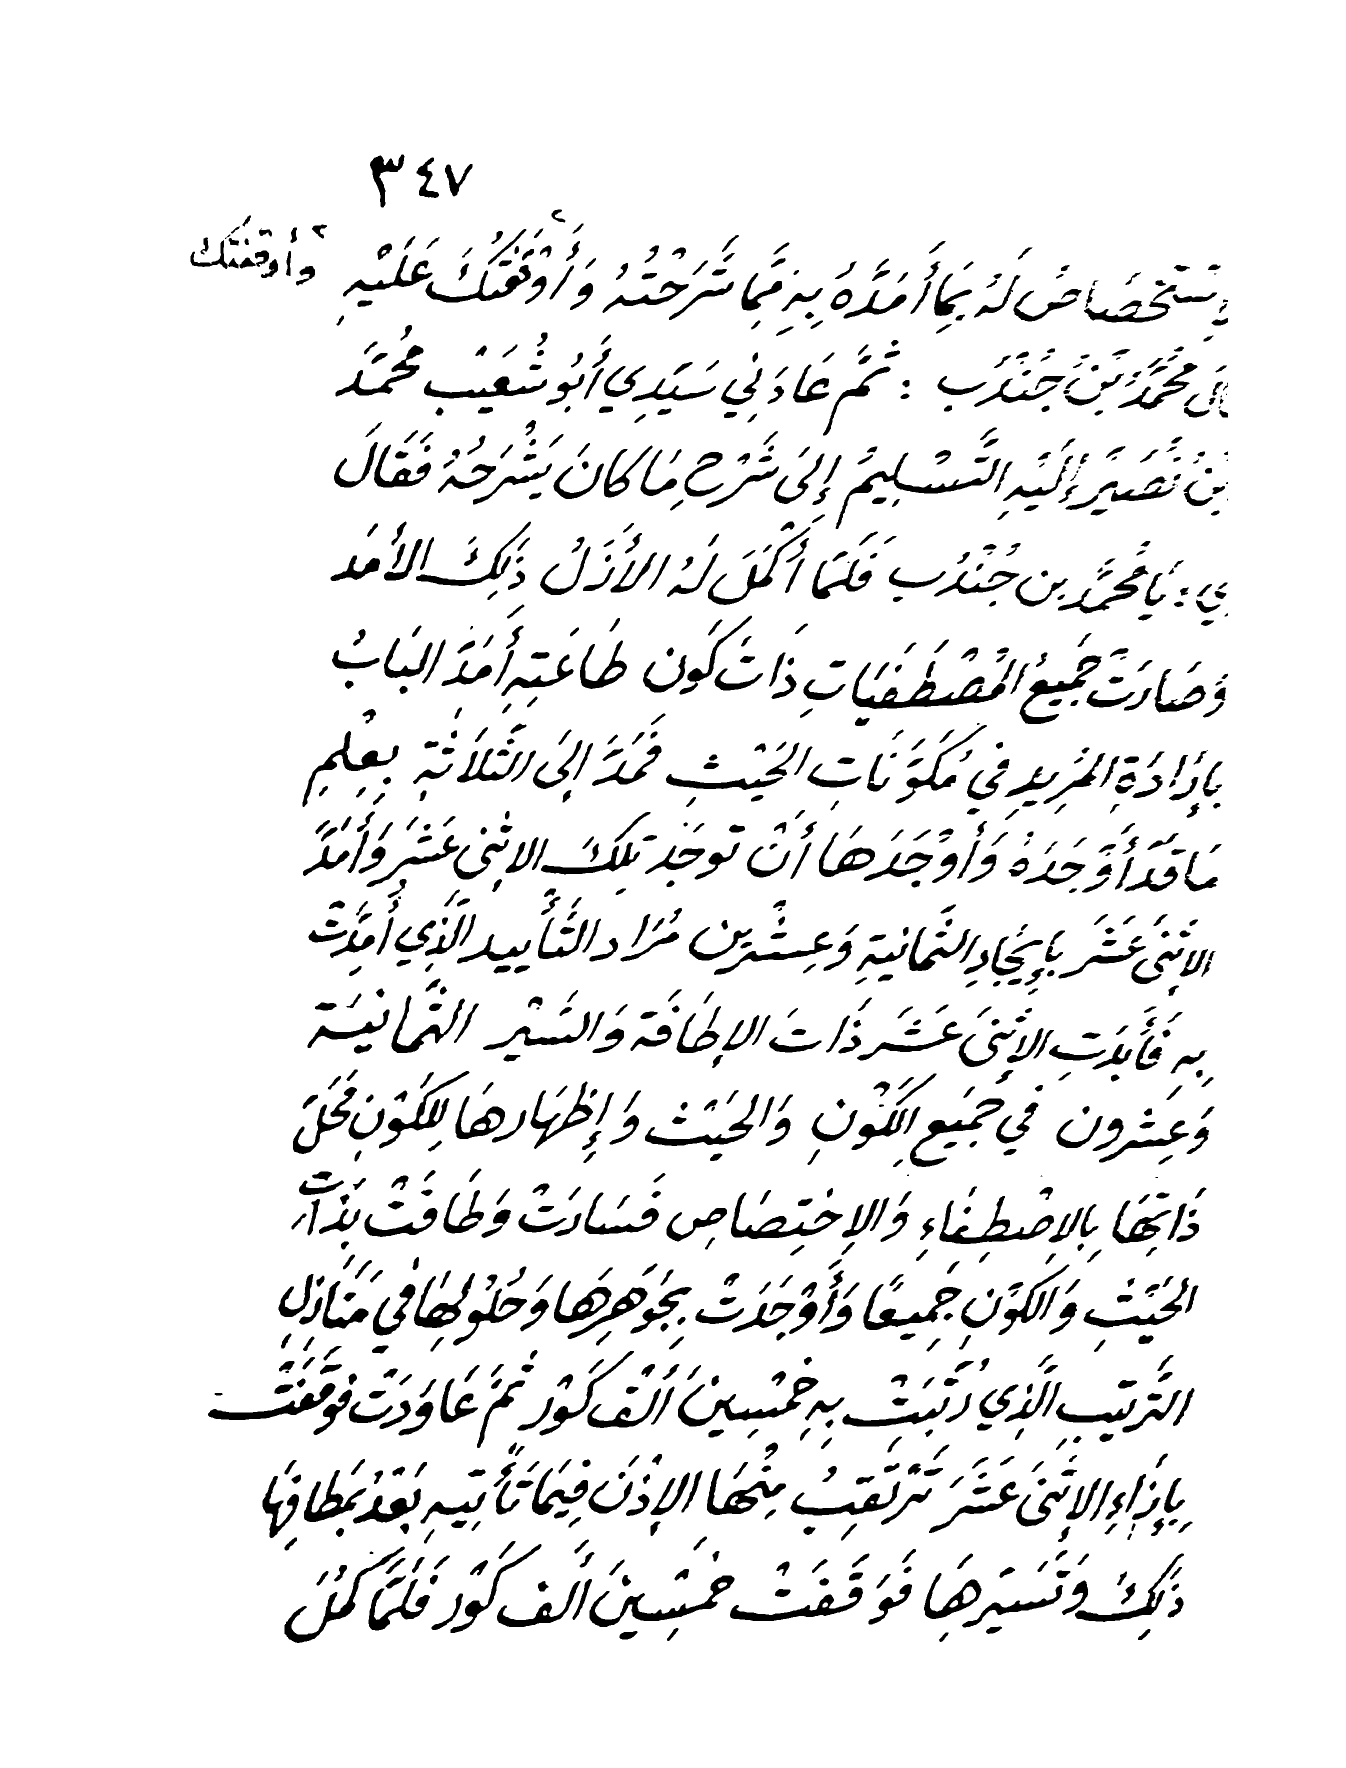 ٣٤٧
لَهُ بِمَا أَمَدَّهُ بِهِ مِمَّا شَرَحْتُهُ وَأَوْقَفْتُكَ عَلَيْهِ
وأوقفتك
مُحَمَّدُ بْنُ جُنْدُبِ : ثُمَّ عَادَنِي سَيِّدِي أَبُو شُعَيْبٍ مُحَمَّدُ
بْنُ نُصَيْرٍ إِلَيْهِ التَّسْلِيمُ إِلَى شَرْحِ مَا كَانَ يَشْرَحُهُ فَقَالَ
لِي : يَا مُحَمَّدُ بن جُنْدُبِ فَلَمَّا أَكْمَلَ لَهُ الأَزَلُ ذَلِكَ الأَمَد
وَصَارَتْ جَمِيعُ المُصْطَفَيَاتِ ذَاتَ كَون طَاعَتِهِ أَمَدَّ البَابُ
بِإِرَادَةِ المَزِيدِ فِي مُكَوَّنَاتِ الحَيْثِ فَمَدَّ إِلَى الثَّلاَثَةِ بِعِلْمِ
مَا قَدْ أَوْجَدَهُ وَأَوْجَدَهَا أَنْ تُوجَدَ تِلكَ الاِثْنَى عَشَرَ وَأَمَدَّ
الاِثْنَى عَشَرَ بِإِيجَادِ الثَّمانِيَةِ وَعِشْرِين مُرَاد التَّأْييد الَّذِي أُمِدَّتْ
بِهِ فَأَبْدَتِ الإِثْنَى عَشَر ذَاتَ الإِطَافَة وَالسَيْر الثَّمانِيَة
وَعِشْرون في جَمِيعِ الكَوْنِ وَالحَيْث وَإِظْهَارهَا لِلكَوْنِ مَحَلّ
ذَاتِهَا بِالاِصْطِفَاءِ وَالاِخْتِصَاصِ فَسَارَتْ وَطَافَتْ بِذَاتِ
الحَيْثِ وَالكَوْنِ جَمِيعًا وَأَوْجَدَتْ بِجَوْهَرِهَا وَحُلُولِهَا فِي مَنَازِلِ
التَّرْتِيبِ الَّذِي رُتِّبَتْ بِهِ خَمْسِينَ أَلْفَ كَوْرٍ ثُمَّ عَاوَدَتْ فَوَقَفَتْ
بِإِزَاءِ الإِثْنَى عَشَرَ تَرْتَقِبُ مِنْهَا الإِذْنَ فِيمَا تَأْتِيهِ بَعْدُ بِمَطَافِهَا
ذَلِكَ وَتَسَيّرهَا فَوَقَفَتْ خَمْسِينَ أَلف كَوْر فَلَمَّا كَمُلَ